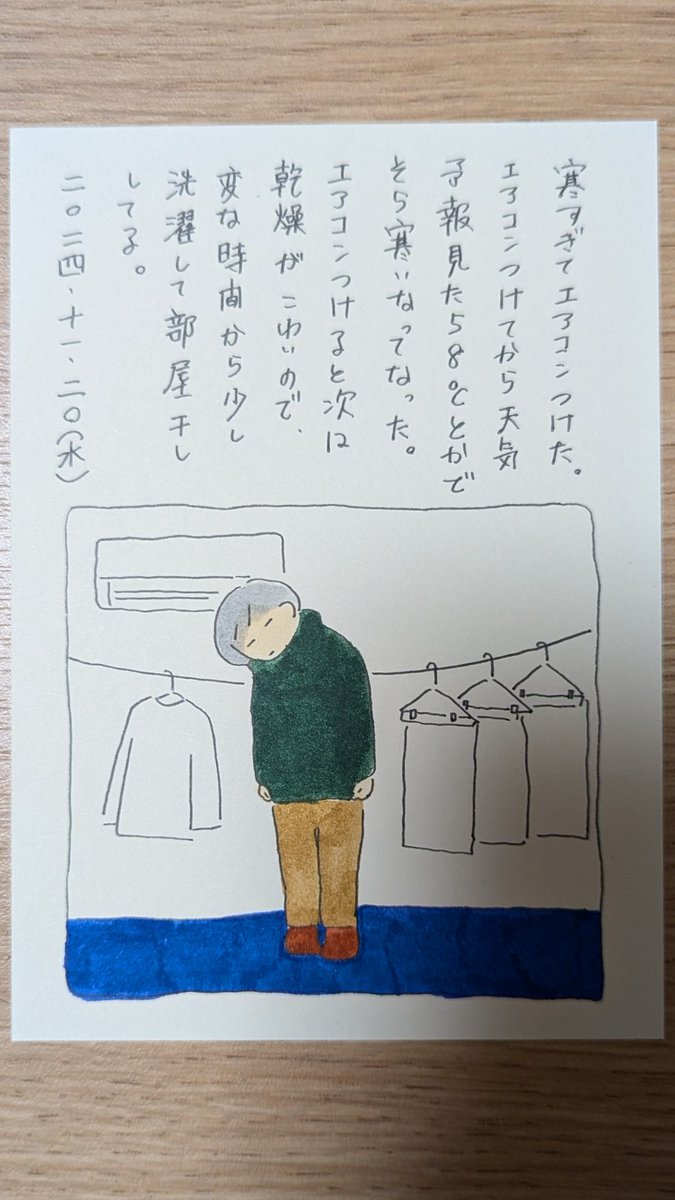 寒すぎてエアコンつけた。
エアコンつけてから天気
予報見たら8℃とかで
そら寒いなってなった。
エアコンつけると次は
乾燥がこわいので、
変な時間から少し
洗濯して部屋干し
してる。
二〇二四、十一、二〇(水)